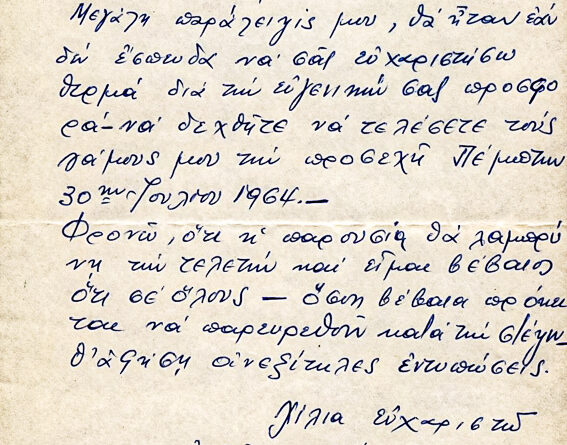 Μεγάλη παράλειψίς μου, θά ἦταν ἐάν
δέν ἔσπευδα νά σᾶς εὐχαριστήσω
θερμά διά τήν εὐγενικήν σας προσφο
ρά-νά δεχθῆτε νά τελέσετε τούς
γάμους μου τήν προσεχῆ Πέμπτην
30ην Ἰουλίου 1964.—
Φρονῶ, ὅτι ἡ παρουσία θά λαμπρύ
νῃ τήν τελετήν καί εἶμαι βέβαιος
ὅτι σέ ὅλους — ὅσοι βέβαια πρόκει
ται νά παρευρεθοῦν κατά τήν στέψιν_
θ' ἀφήσῃ ἀνεξίτηλες ἐντυπώσεις.
Χίλια εὐχαριστῶ